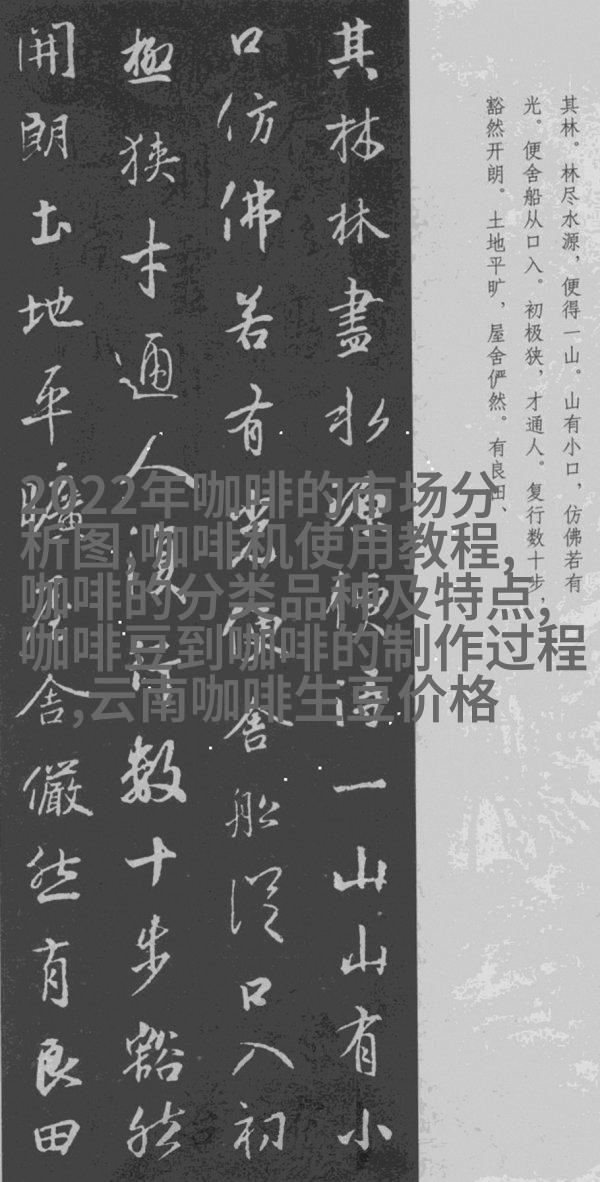 其林。林尽水源，便得一山。山有小口，仿佛若有
光。便舍船从口入。初极狭，才通人。复行数十步，
豁然开朗。土地平旷，屋舍俨然。有良田、
其林林盡水源便得一山山有小
口仿佛若有光便舍船從口入初
極狭才通人復行数十步豁然
開朗土地平曠屋舍儼然有良田
2022年咖啡的市场分
析图,咖啡机使用教程,
咖啡的分类品种及特点,
咖啡豆到咖啡的制作过程
,云南咖啡生豆价格